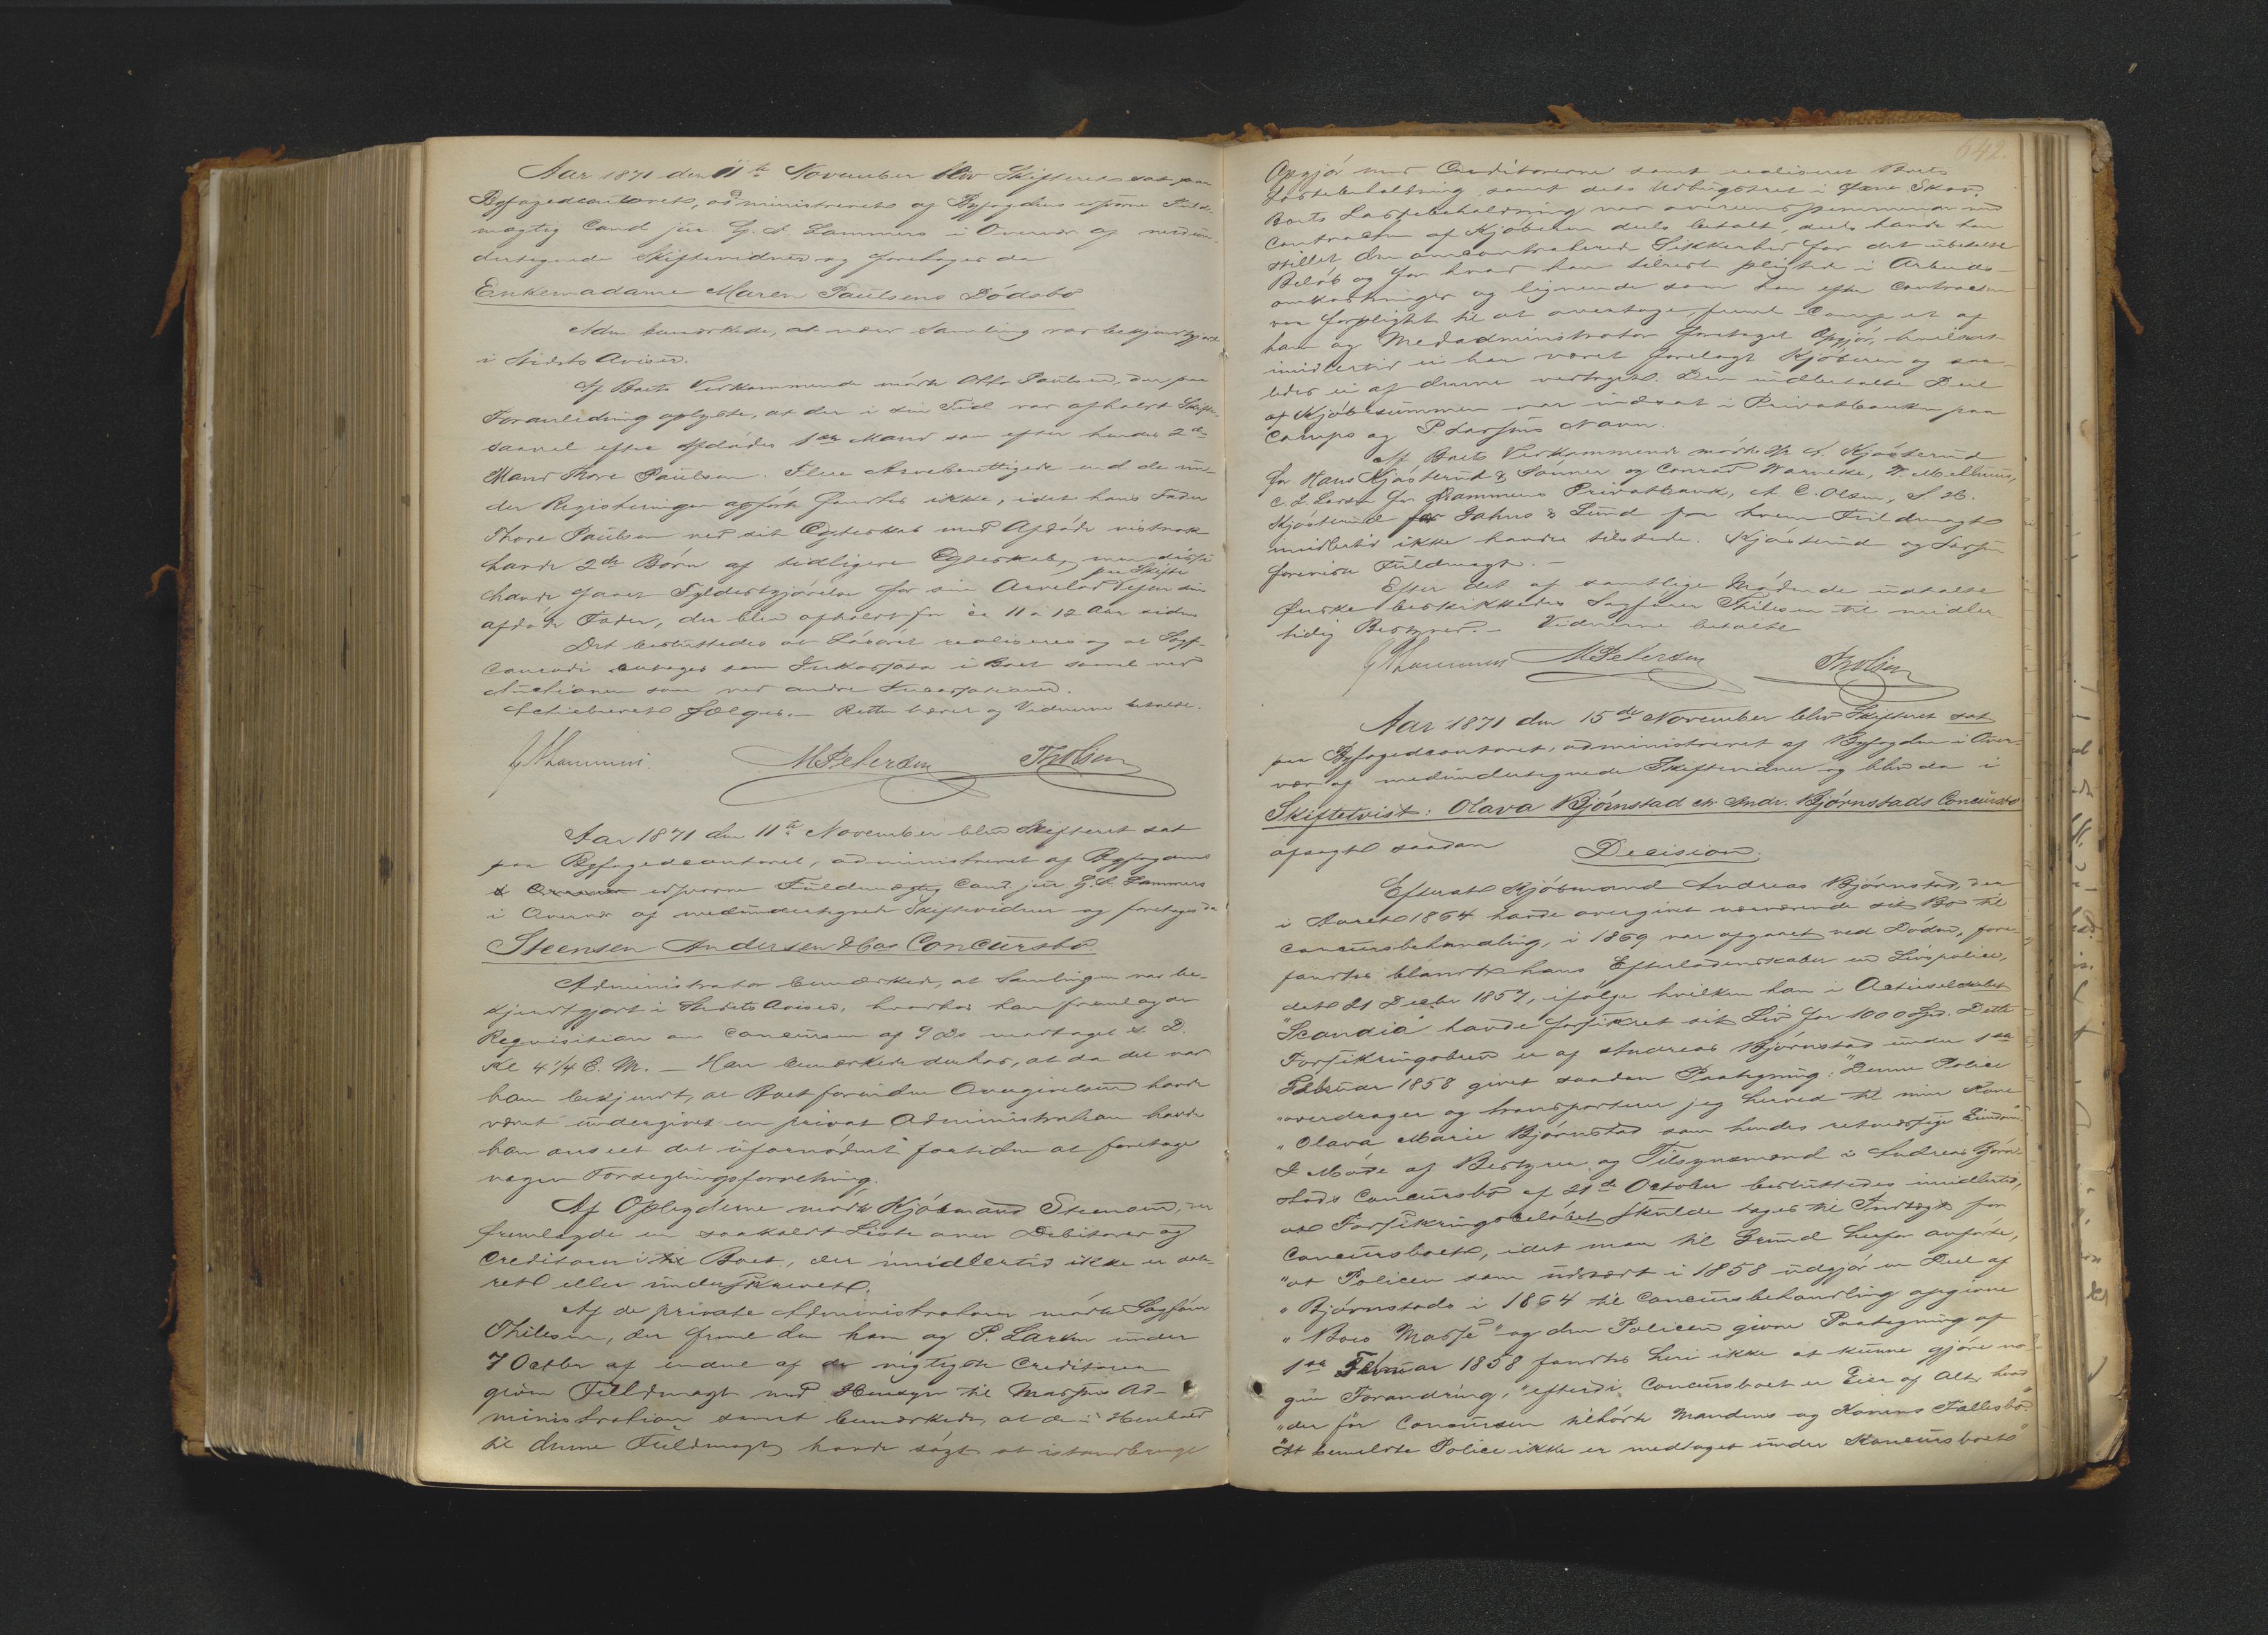 Aar 1871 den 11te November blev Skifteret sat paa
Byfogedcontoret, administreret af Byfogdens edsvorne Fuld-
mægtig Cand. jur. G. A. Lammers i Overvær af medun-
dertegnede Skiftevidner og foretages da
Enkemadame Maren Paulsens Dödsbo
Adm. bemærkede, at nær. Samling var bekjendtgjort
i Stedets Aviser.
Af Boets Vedkommende mödte Otto Paulsen, der paa
Foranledning oplyste, at der i sin Tid var afholdt Skifte
saavel efter Afdödes 1ste Mand som efter hendes 2den
Mand Thore Paulsen. Flere Arveberettigede end de un-
der Registeringen opförte fandtes ikke, idet hans Fader
Thore Paulsen ved sit Egteskab med Afdöde vistnok
havde 2de Börn af tidligere Egteskab, men disse
paa Skifte
havde faaet Fyldestgjörelse for sin Arvelod efter sin
afdöde Fader, der blev afholdt for ca 11 à 12 Aar siden
Det besluttedes at Lösöret realiseres og at Sagf.
antages som Inkassator i Boet saavel ved
Auctionen som ved andre Incassationer.
sælges. - Retten hævet og Vidnerne betalte.
G A Lammers. M Petersen Th Olsen
Aar 1871 den 11te November blev Skifteret sat
paa Byfogedcontoret, administreret af Byfogdens
edsvorne Fuldmægtig Cand. jur. G. A. Lammers
i Overvær af medundertegnede Skiftevidner og foretages da
Steensen Andersen & Co.s Concursbo
Administrator bemærkede, at Samlingen var be-
kjendtgjort i Stedets Aviser, hvorhos han fremlagde
Requisition om Concursen af 9 Ds modtaget s. D.
Kl 4 1/4 E. M. - Han bemærkede derhos, at da det var
ham bekjendt, at Boet forinden Overgivelsen havde
været undergivet en privat Administration havde
han anseet det ufornödent fortiden at foretage
nogen Forseglingsforretning.
Af Opbyderne mödte Kjöbmand Steensen, der
fremlagde en saakaldt Liste over Debitorer og
Creditorer i Boet, der imidlertid ikke er date-
ret eller underskrevet.
Af de private Administratorer mödte Sagförer
Thilesen, der fremlagde den ham og P. Larsen under
7 Octbr af endel af de vigtigste Creditorer
givne Fuldmagt med Hensyn til Massens Ad-
ministration samt bemærkede, at de i Henhold
til denne Fuldmagt havde sögt at istandbringe
542.
Opgjör med Creditorerne samt realiseret Boets
Lastebeholdning samt dets i Skov.
Boets Lastebeholdning var overensstemmende med
Contracten af Kjöberen dels betalt, dels havde han
stillet den omcontraherede Sikkerhed for det ubetalte
Belöb og for hvad han tilrest pligtede i Arbeids-
omkostninger og lignende som han efter Contracten
var forpligtet til at overtage, af
ham og Medadministrator foretaget Opgjör, hvilket
imidlertid ei har været forelagt Kjöberen og saa-
ledes ei af denne vedtaget. Den indbetalte Deel
af Kjöbesummen var indsat i Privatbanken paa
Camps og P. Larsens Navn.
Af Boets Vedkommende mödte Hr A. Kjösterud
for Hans Kjösterud & Sönner og Conrad Warneke, W. Mellum,
C. L. Larsen for Drammens Privatbank, A. C. Olsen, S. H.
Kjösterud for Jahns & Lund fra hvem Fuldmagt
imidlertid ikke havdes tilstede. Kjösterud og Larsen
foreviste Fuldmagt. -
Efter det af samtlige Mödende udtalte
Önske beskikkedes Sagförer Thilesen til midler-
tidig Bestyrer. - Vidnerne betalte
G A Lammers M Petersen Th Olsen
Aar 1871 den 15de November blev Skifteret sat
paa Byfogedcontoret, administreret af Byfogden i Over-
vær af medundertegnede Skiftevidner og blev da i
Skiftetvist: Olava Björnstad ctr Andr. Björnstads Concursbo
afsagt saadan Decision:
Efterat Kjöbmand Andreas Björnstad, der
i Aaret 1864 havde overgivet nærværende sit Bo til
Concursbehandling, i 1869 var afgaaet ved Döden, fore-
fandtes blandt hans Efterladenskaber en Livspolice,
det 21 Decbr 1857, ifölge hvilken han i Actieselskabet
"Scandia" havde forsikret sit Liv for 1000 Spd. Dette
Forsikringsbrev er af Andreas Björnstad under 1ste
Februar 1858 givet saadan Paategning: "Denne Police
"overdrager og transporterer jeg herved til min Kone
"Olava Marie Björnstad som hendes retmæssige Eiendom."
I Möde af Bestyrer og Tilsynsmænd i Andreas Björn-
stads Concursbo af 21de October besluttedes imidlertid,
at Forsikringsbelöbet skulde tages til Indtægt for
Concursboet, idet man til Grund herfor anförte,
"at Policen som udstædt i 1858 udgjör en Deel af
"Björnstads i 1864 til Concursbehandling opgivne
"Boes Masse" og den Policen givne Paategning af
1ste Februar 1858 fandtes heri ikke at kunne gjöre no-
gen Forandring, "efterdi Concursboet er Eier af Alt, hvad
"der för Concursen tilhörte Mandens og Konens Fællesbo."
At bemeldte Police ikke er medtaget under Concursboets